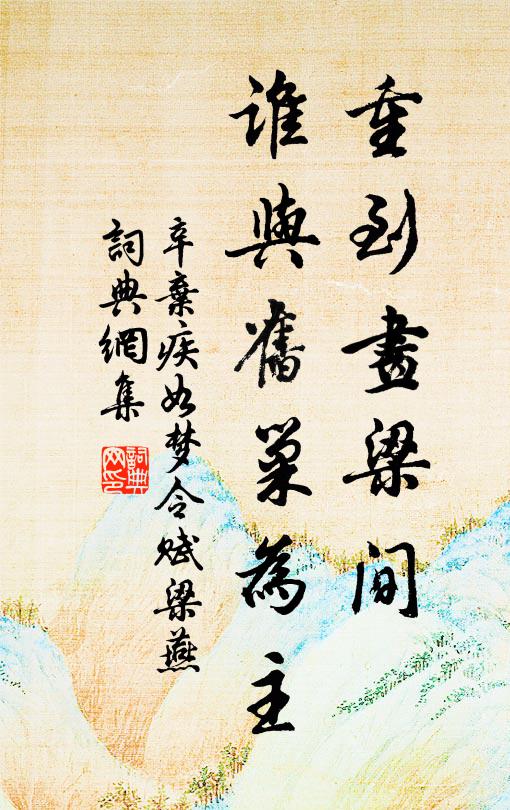 重到畫梁間
誰與舊巢為主
辛棄疾如梦令賦梁燕
詞典網集
詞典网印